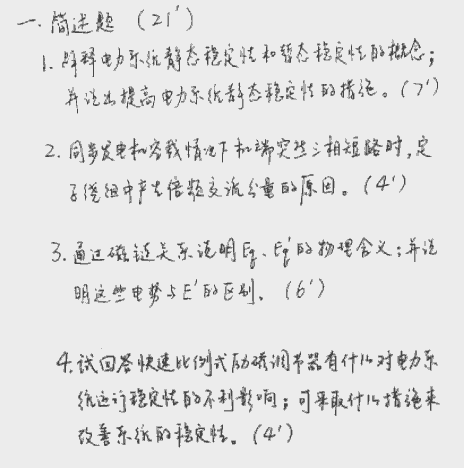 一. 简述题 (21')
1. 解释电力系统静态稳定性和暂态稳定性的概念;
并说出提高电力系统静态稳定性的措施。(7')
2. 同步发电机空载情况下机端突然三相短路时,定
子绕组中产生倍频交流分量的原因。(4')
3. 通过磁链关系说明Eq、Eq'的物理含义;并说
明这些电势与E'的区别。(6')
4. 试回答快速比例式励磁调节器有什么对电力系
统运行稳定性的不利影响;可采取什么措施来
改善系统的稳定性。(4')